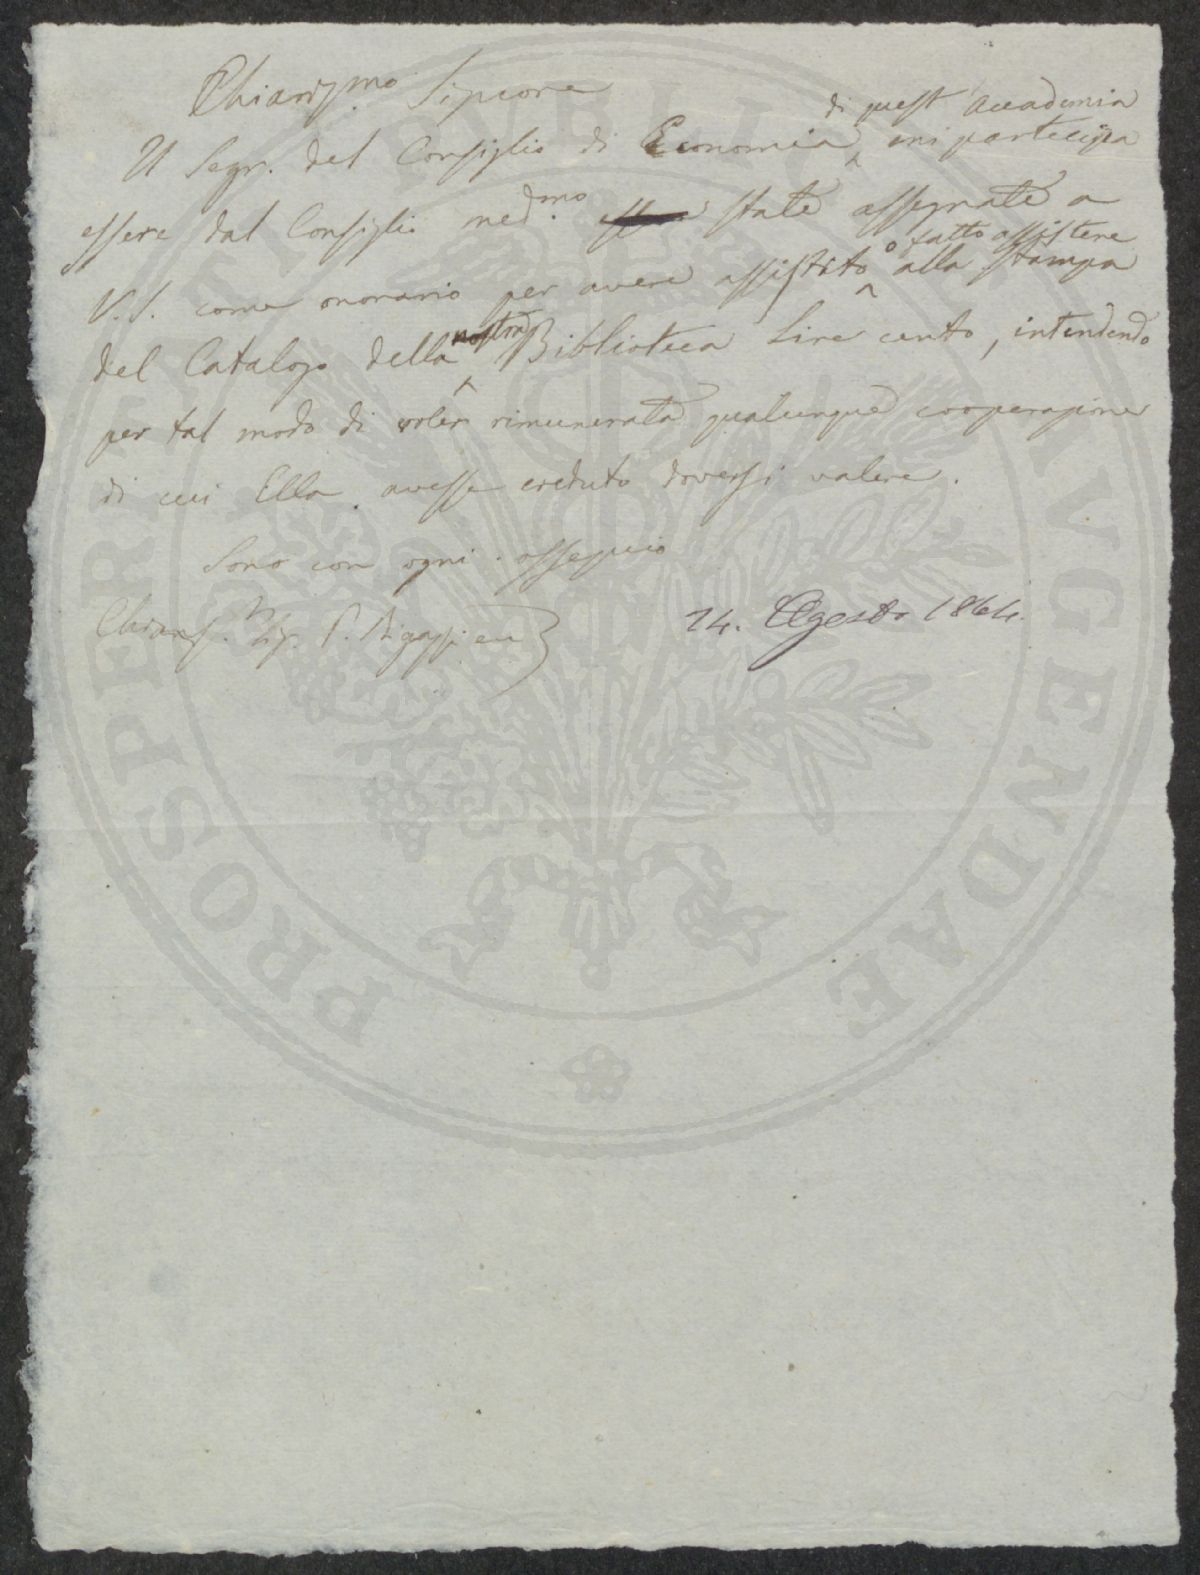 Chiariss.mo Signore
Il Segr. del Consiglio di Economia di quest'Accademia mi partecipa
essere dal Consiglio med.mo state assegnate a
V. S. come onorario per avere assistito o fatto assistere alla stampa
del Catalogo della nostra Biblioteca Lire cento, intendendo
per tal modo di voler rimunerata qualunque cooperazione
di cui Ella avesse creduto doversi valere.
Sono con ogni ossequio
Chiariss. Sig. P. Bigazzi
24. Agosto 1864.
PROSPERITATI PUBLICAE AUGENDAE